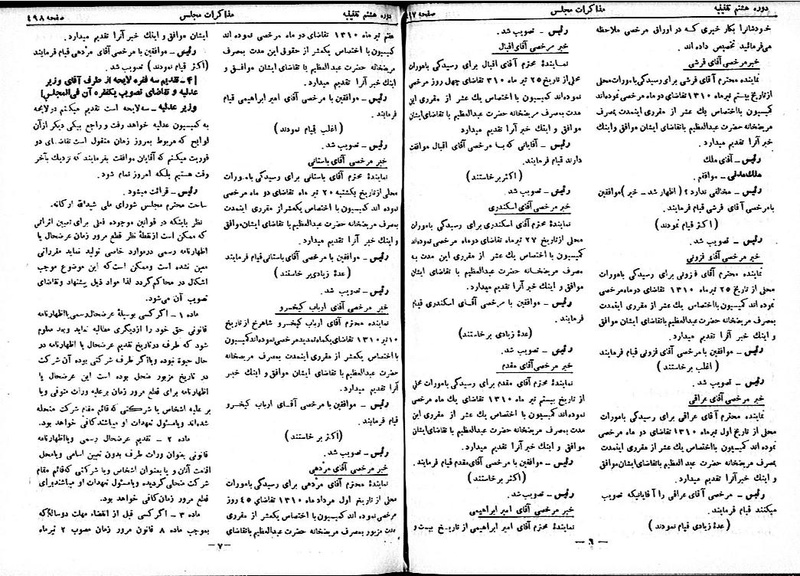 دوره هشتم تقنینیه
مذاکرات مجلس
صفحه ۴۱۷
خودشانرا بکار خیری که در اوراق مرخصی ملاحظه
می‌فرمائید تخصیص داده اند .
خبر مرخصی آقای قرشی
نماینده محترم آقای قرشی برای رسیدگی بامورات محلی
از تاریخ بیستم تیر ماه ۱۳۱۰ تقاضای دو ماه مرخصی نموده‌اند
کمیسیون با اختصاص یك عشر از مقرری اینمدت بمصرف
مریضخانه حضرت عبدالعظیم با تقاضای ایشان موافق واینك
خبر آنرا تقدیم میدارد .
رئیس ـ آقای ملك
ملك مدنی ـ موافقم .
رئیس ـ مخالفی ندارد ؟ ( اظهار شد ـ خیر ) موافقین
با مرخصی آقای قرشی قیام فرمایند .
( اکثر قیام نمودند )
رئیس ـ تصویب شد .
خبر مرخصی آقای فزونی
نماینده محترم آقای فزونی برای رسیدگی بامورات
محلی از تاریخ ۲۵ تیر ماه ۱۳۱۰ تقاضای دوماه مرخصی
نموده اند کمیسیون با اختصاص یك عشر از مقرری اینمدت
بمصرف مریضخانه حضرت عبدالعظیم با تقاضای ایشان موافق
واینك خبر آنرا تقدیم میدارد .
رئیس ـ موافقین با مرخصی آقای فزونی قیام فرمایند
( اغلب برخاستند )
رئیس ـ تصویب شد .
خبر مرخصی آقای عراقی
نماینده محترم آقای عراقی برای رسیدگی بامورات
محلی از تاریخ اول تیرماه ۱۳۱۰ تقاضای دو ماه مرخصی
نموده اند کمیسیون با اختصاص یك عشر از مقرری اینمدت
بمصرف مریضخانه حضرت عبدالعظیم با تقاضای ایشان موافق
واینك خبر آنرا تقدیم میدارد .
رئیس ـ مرخصی آقای عراقی را آقایانیکه تصویب
میکنند قیام فرمایند .
( عدهٔ زیادی قیام نمودند )
رئیس ـ تصویب شد .
خبر مرخصی آقای اقبال
نماینده محترم آقای اقبال برای رسیدگی بامورات
محلی از تاریخ ۲۵ تیر ماه ۳۱۰ تقاضای چهل روز مرخصی
نموده‌اند کمیسیون با اختصاص یك عشر از مقرری این مدت
بمصرف مریضخانه حضرت عبدالعظیم با تقاضای ایشان
موافق و اینك خبر آنرا تقدیم میدارد .
رئیس ـ آقایانی که با مرخصی آقای اقبال موافقت
دارند قیام فرمایند .
( اکثر برخاستند )
رئیس ـ تصویب شد .
خبر مرخصی آقای اسکندری
نمایندهٔ محترم آقای اسکندری برای رسیدگی بامورات
محلی از تاریخ ۲۷ تیر ماه تقاضای دوماه مرخصی نموده‌اند
کمیسیون با اختصاص یك عشر از مقرری این مدت به
مصرف مریضخانه حضرت عبدالعظیم با تقاضای ایشان
موافق و اینك خبر آنرا تقدیم میدارد .
رئیس ـ موافقین با مرخصی آقای اسکندری قیام
فرمایند .
( عدهٔ زیادی برخاستند )
رئیس ـ تصویب شد .
خبر مرخصی آقای مقدم
نمایندهٔ محترم آقای مقدم برای رسیدگی بامورات محلی
از تاریخ بیستم تیر ماه ۱۳۱۰ تقاضای یك ماه مرخصی
نموده‌اند کمیسیون با اختصاص یك عشر از مقرری این
مدت بمصرف مریضخانه حضرت عبدالعظیم با تقاضای ایشان
موافق و اینك خبر آنرا تقدیم میدارد .
رئیس ـ موافقین با مرخصی آقای مقدم قیام فرمایند .
( اکثر برخاستند )
رئیس ـ تصویب شد .
خبر مرخصی آقای امیر ابراهیمی
نمایندهٔ محترم آقای امیر ابراهیمی از تاریخ بیست و
ـ ۶ ـ
دوره هشتم تقنینیه
مذاکرات مجلس
صفحه ۴۱۸
هفتم تیر ماه ۱۳۱۰ تقاضای دو ماه مرخصی نموده اند
کمیسیون با اختصاص یکعشر از حقوق این مدت بمصرف
مریضخانه حضرت عبدالعظیم با تقاضای ایشان موافق و
اینك خبر آنرا تقدیم میدارد .
رئیس ـ موافقین با مرخصی آقای امیر ابراهیمی قیام
فرمایند .
( اغلب قیام نمودند )
رئیس ـ تصویب شد .
خبر مرخصی آقای باستانی
نماینده محترم آقای باستانی برای رسیدگی بامورات
محلی از تاریخ یکشنبه ۲۰ تیر ماه تقاضای دو ماه مرخصی
نموده اند کمیسیون با اختصاص یکعشر از مقرری اینمدت
بمصرف مریضخانه حضرت عبدالعظیم با تقاضای ایشان موافق
و اینك خبر آنرا تقدیم میدارد .
رئیس ـ موافقین با مرخصی آقای باستانی قیام فرمایند
( عدهٔ زیادی برخاستند )
رئیس ـ تصویب شد .
خبر مرخصی آقای ارباب کیخسرو
نماینده محترم آقای ارباب کیخسرو شاهرخ از تاریخ
۱۰ تیر ۱۳۱۰ تقاضای یکماه تمدید مرخصی نموده‌اند کمیسیون
با اختصاص یکعشر از مقرری اینمدت بمصرف مریضخانه
حضرت عبدالعظیم با تقاضای ایشان موافق و اینك خبر
آنرا تقدیم میدارد .
رئیس ـ موافقین با مرخصی آقای ارباب کیخسرو
قیام فرمایند .
( اکثر برخاستند )
رئیس ـ تصویب شد .
خبر مرخصی آقای مژدهی
نماینده محترم آقای مژدهی برای رسیدگی بامورات محلی
از تاریخ اول مرداد ماه ۱۳۱۰ تقاضای ۴۵ روز
مرخصی نموده‌اند کمیسیون با اختصاص یکعشر از مقرری
مدت مزبور بمصرف مریضخانه حضرت عبدالعظیم با تقاضای
ایشان موافق و اینك خبر آنرا تقدیم میدارد .
رئیس ـ موافقین با مرخصی آقای مژدهی قیام فرمایند
( اکثر قیام نمودند ) تصویب شد .
[ ۴ ـ تقدیم سه فقره لایحه از طرف آقای وزیر
عدلیه و تقاضای تصویب یکفقره آن فی‌المجلس ]
وزیر عدلیه ـ سه لایحه است تقدیم میکنم دولایحه
به کمیسیون عدلیه خواهد رفت و راجع بیکی دیگر از آن
لوایح که مربوط بمرور زمان منقول است تقاضای دو
فوریت میکنم که آقایان موافقت بفرمایند که نزدیك بآخر
وقت هستیم بلکه امروز تمام شود .
رئیس ـ قرائت میشود .
ساحت محترم مجلس شورای ملی شیدالله ارکانه .
نظر باینکه در قوانین موجوده فعلی برای تعیین اثراتی
که ممکن است از نقطهٔ نظر قطع مرور زمان عرضحال یا
اظهارنامه رسمی در موارد خاصی تولید نماید مقرراتی
معین نشده است و ممکن است که این موضوع موجب
اشکال در محاکم گردد لذا مواد ذیل پیشنهاد و تقاضای
تصویب آن می‌شود .
ماده ۱ ـ اگر کسی بوسیلهٔ عرضحال رسمی یا اظهارنامه
قانونی حق خود را از دیگری مطالبه نماید وبعد معلوم
شود که طرف در تاریخ تقدیم عرضحال یا اظهارنامه در
حال حیوة نبوده ویا اگر طرف شرکتی بوده آن شرکت
در تاریخ مزبور منحل بوده است این عرضحال یا
اظهارنامه برای قطع مرور زمان بر علیه وراث متوفی ویا
بر علیه اشخاص یا شرکتی که قائم مقام شرکت منحله
شده‌اند ویا مسئول تعهدات او میباشند کافی خواهد بود .
ماده ۲ ـ تقدیم عرضحال رسمی ویا اظهارنامه
قانونی بعنوان وراث طرف بدون تعیین اسامی ویا محل
اقامت آنان و یا بعنوان اشخاص ویا شرکتی که قائم مقام
شرکت منحلی گردیده ویا مسئول تعهدات او میباشند برای
قطع مرور زمان کافی خواهد بود .
ماده ۳ ـ اگر کسی قبل از انقضاء مهلت دو ساله که
بموجب ماده ۸ قانون مرور زمان مصوب ۲ تیر ماه
ـ ۷ ـ